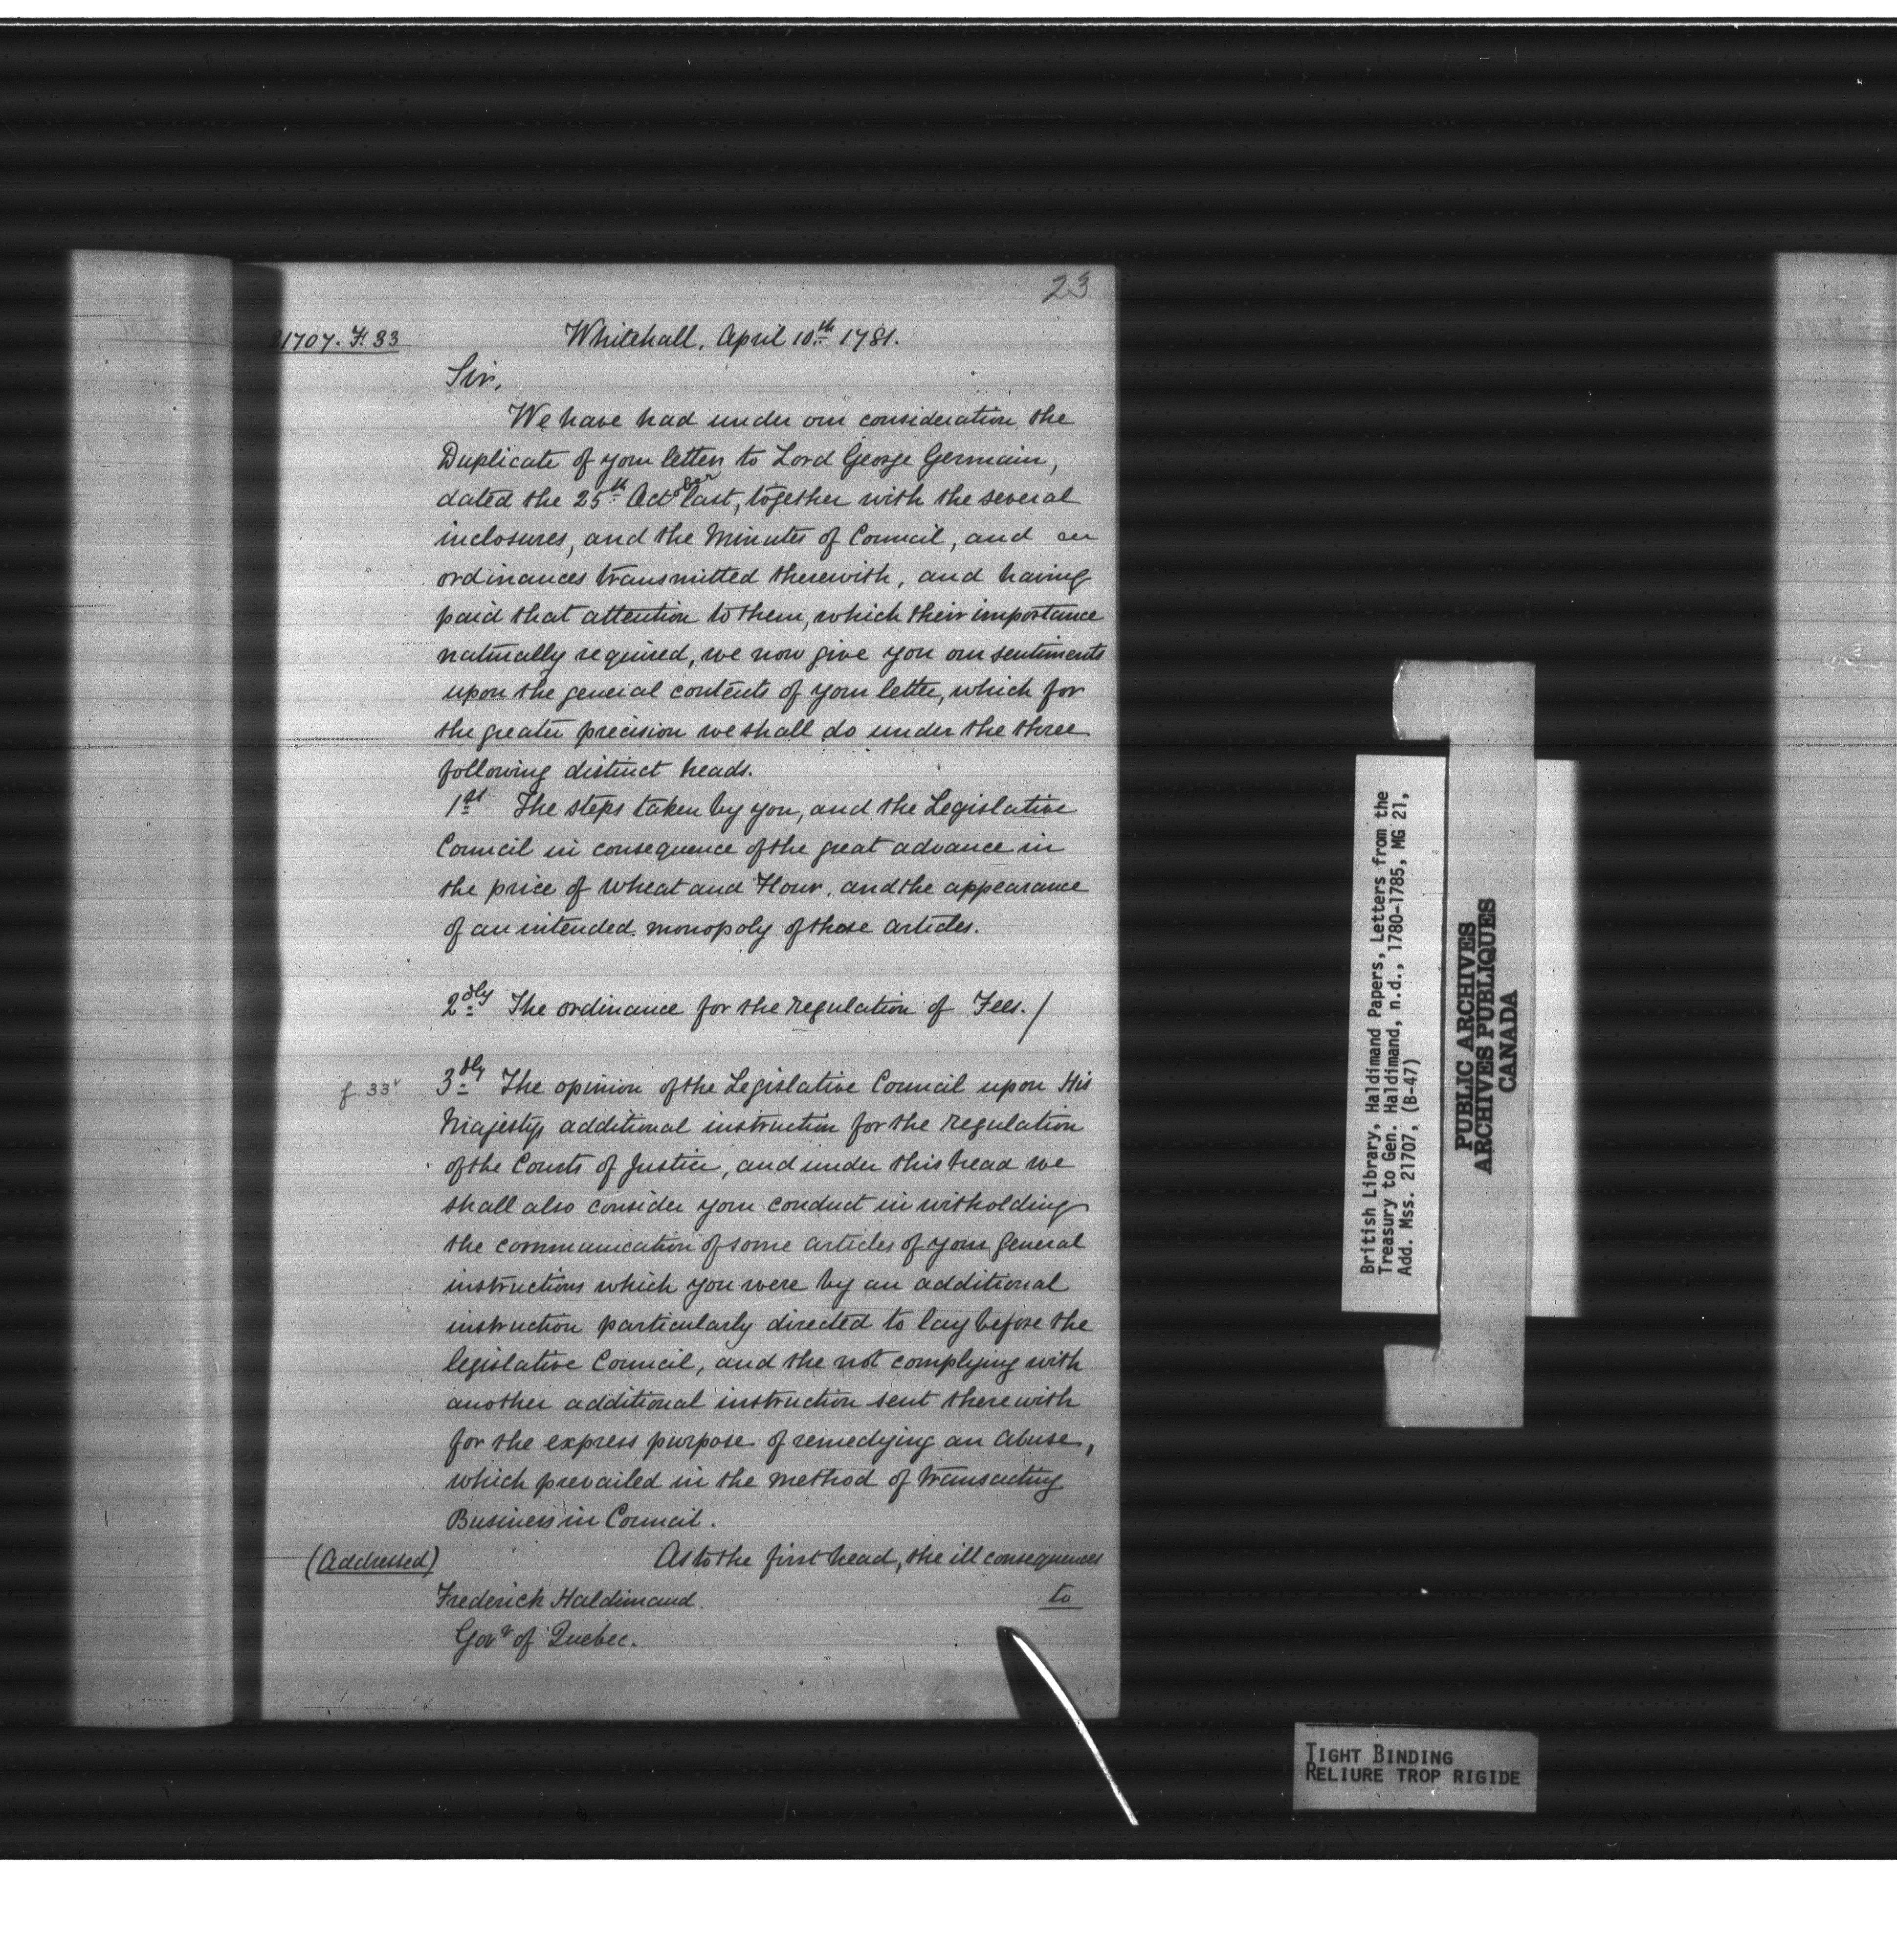 23
21707. F. 33
Whitehall, April 10th 1781.
Sir,
We have had under our consideration the
Duplicate of your letter to Lord George Germain,
dated the 25th October last, together with the several
inclosures, and the Minutes of Council, and an
ordinances transmitted therewith, and having
paid that attention to them, which their importance
naturally required, we now give you our sentiments
upon the general contents of your letter, which for
the greater precision we shall do under the three
following distinct heads.
1st The steps taken by you, and the Legislative
Council in consequence of the great advance in
the price of Wheat and Flour, and the appearance
of an intended monopoly of those articles.
2dly The ordinance for the regulation of Fees. /
f. 33v
3dly The opinion of the Legislative Council upon His
Majestys additional instruction for the regulation
of the Courts of Justice, and under this head we
shall also consider your conduct in witholding
the communication of some articles of your general
instructions which you were by an additional
instruction particularly directed to lay before the
legislative Council, and the not complying with
another additional instruction sent therewith
for the express purpose of remedying an abuse,
which prevailed in the method of transacting
Business in Council.
(Addressed)
As to the first head, the ill consequences
Frederick Haldimand.
to
Govr of Quebec.
British Library, Haldimand Papers, Letters from the
Treasury to Gen. Haldimand, n.d., 1780-1785, MG 21,
Add. Mss. 21707, (B-47)
PUBLIC ARCHIVES
ARCHIVES PUBLIQUES
CANADA
TIGHT BINDING
RELIURE TROP RIGIDE